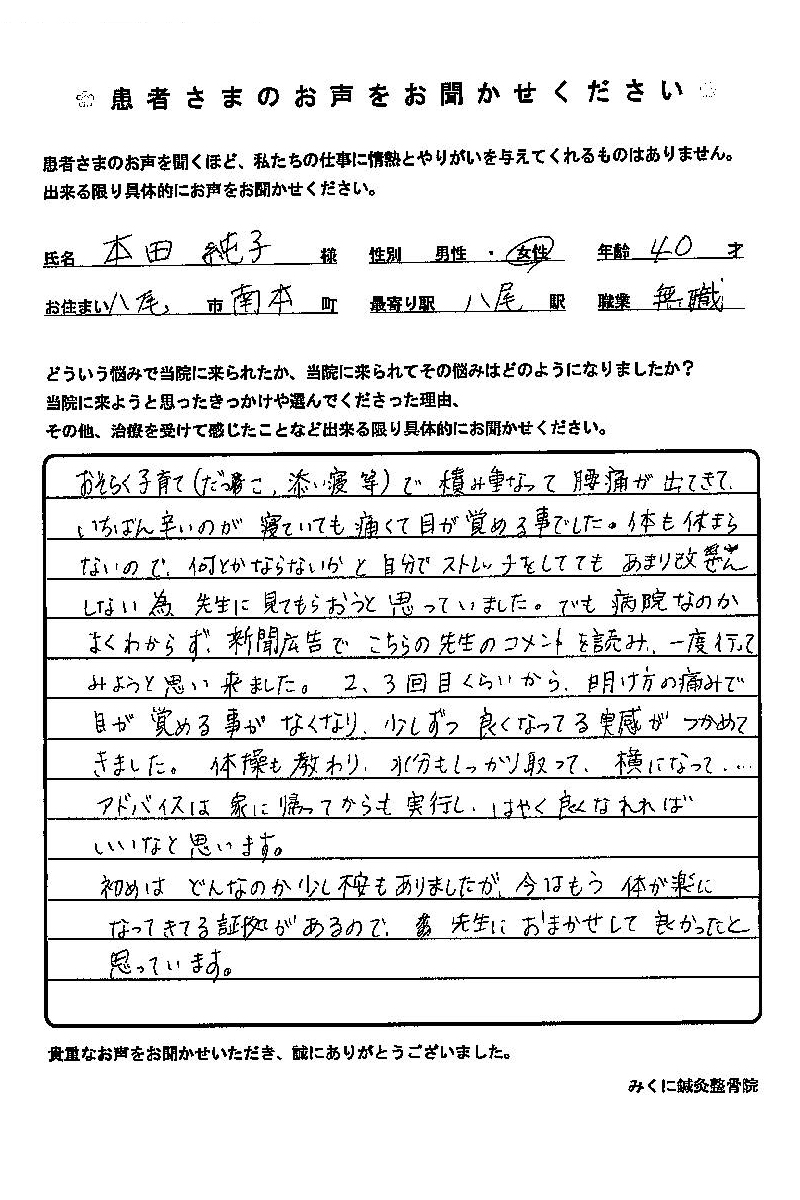 患者さまのお声をお聞かせください
患者さまのお声を聞くほど、私たちの仕事に情熱とやりがいを与えてくれるものはありません。
出来る限り具体的にお声をお聞かせください。
氏名 本田 純子 様 性別 男性 ・ 女性 年齢 40 才
お住まい 八尾 市 南本 町 最寄り駅 八尾 駅 職業 無職
どういう悩みで当院に来られたか、当院に来られてその悩みはどのようになりましたか？
当院に来ようと思ったきっかけや選んでくださった理由、
その他、治療を受けて感じたことなど出来る限り具体的にお聞かせください。
おそらく子育て(だっこ、添い寝等)で 積み重なって 腰痛が出てきて、
いちばん辛いのが 寝ていても痛くて目が覚める事でした。体も休まら
ないので、何とかならないかと自分でストレッチをしてても あまり改ぜん
しない為 先生に見てもらおうと思っていました。でも 病院なのか
よくわからず、新聞広告で こちらの先生のコメントを読み、一度行って
みようと思い来ました。 2、3回目くらいから、明け方の痛みで
目が覚める事がなくなり、少しずつ 良くなってる実感が つかめて
きました。 体操も教わり、水分もしっかり取って、横になって、…
アドバイスは 家に帰ってからも実行し、はやく良くなれれば
いいなと思います。
初めは どんなのか少し不安もありましたが、今はもう 体が楽に
なってきてる証拠があるので、先生に おまかせして 良かったと
思っています。
貴重なお声をお聞かせいただき、誠にありがとうございました。
みくに鍼灸整骨院